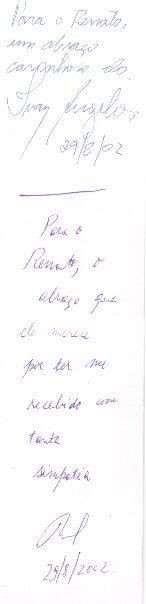 Para o Renato,
um abraço
carinhoso do
Ivan Angelo,
29/8/02
Para o
Renato, o
abraço que
ele merece
por ter me
recebido com
tanta
simpatia
29/8/2002